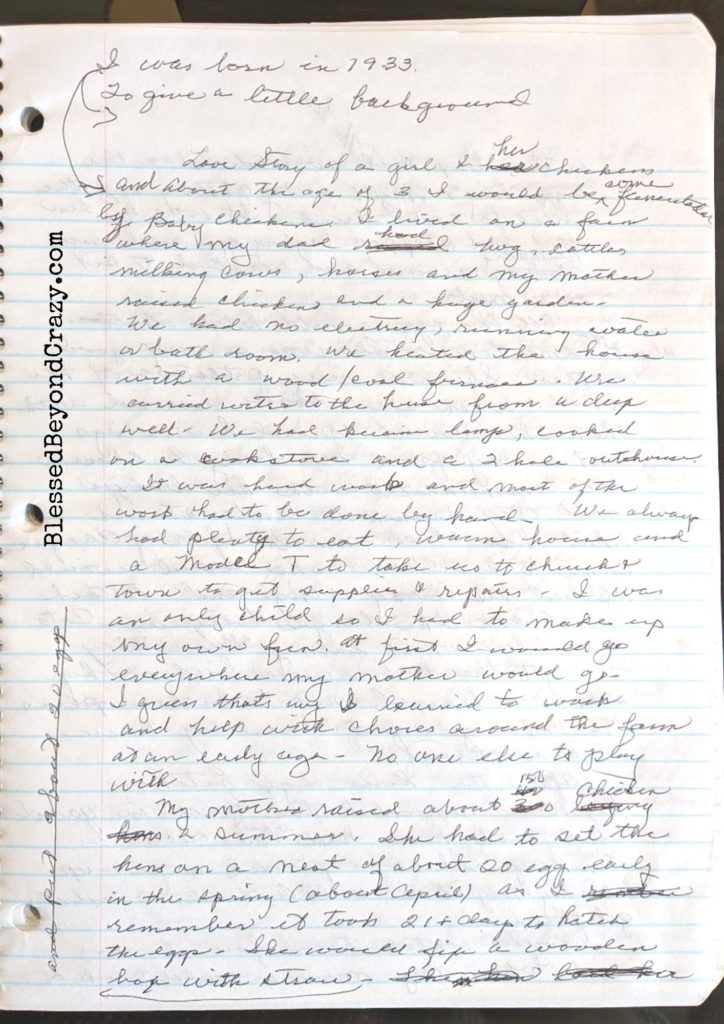 I was born in 1933.
To give a little background
Love Story of a girl & her chickens
and about the age of 3 I would be come
by Baby chickens. I lived on a farm
where my dad had hog, cattle,
milking cows, horses and my mother
raised chickens and a huge garden.
We had no electricy, running water
or bath room. We heated the house
with a wood/coal furnace. We
carried water to the house from a deep
well. We had lamp, cooked
on a cookstove and a 2 hole outhouse.
It was hard work and most of the
work had to be done by hand. We always
had plenty to eat, warm house and
a Model T to take us to church &
town to get supplies & repairs. I was
an only child so I had to make up
my own fun. At first I would go
everywhere my mother would go.
I guess thats why I learned to work
and help with chores around the farm
at an early age - No one else to play
with
My mother raised about 150 chicken
hens a summer. She had to set the
hens on a nest of about 20 egg early
in the spring (about April) as I remember
remember it took 21+ day to hatch
the eggs. She would fix a wooden
box with straw.
and put about 20 egg
BlessedBeyondCrazy.com